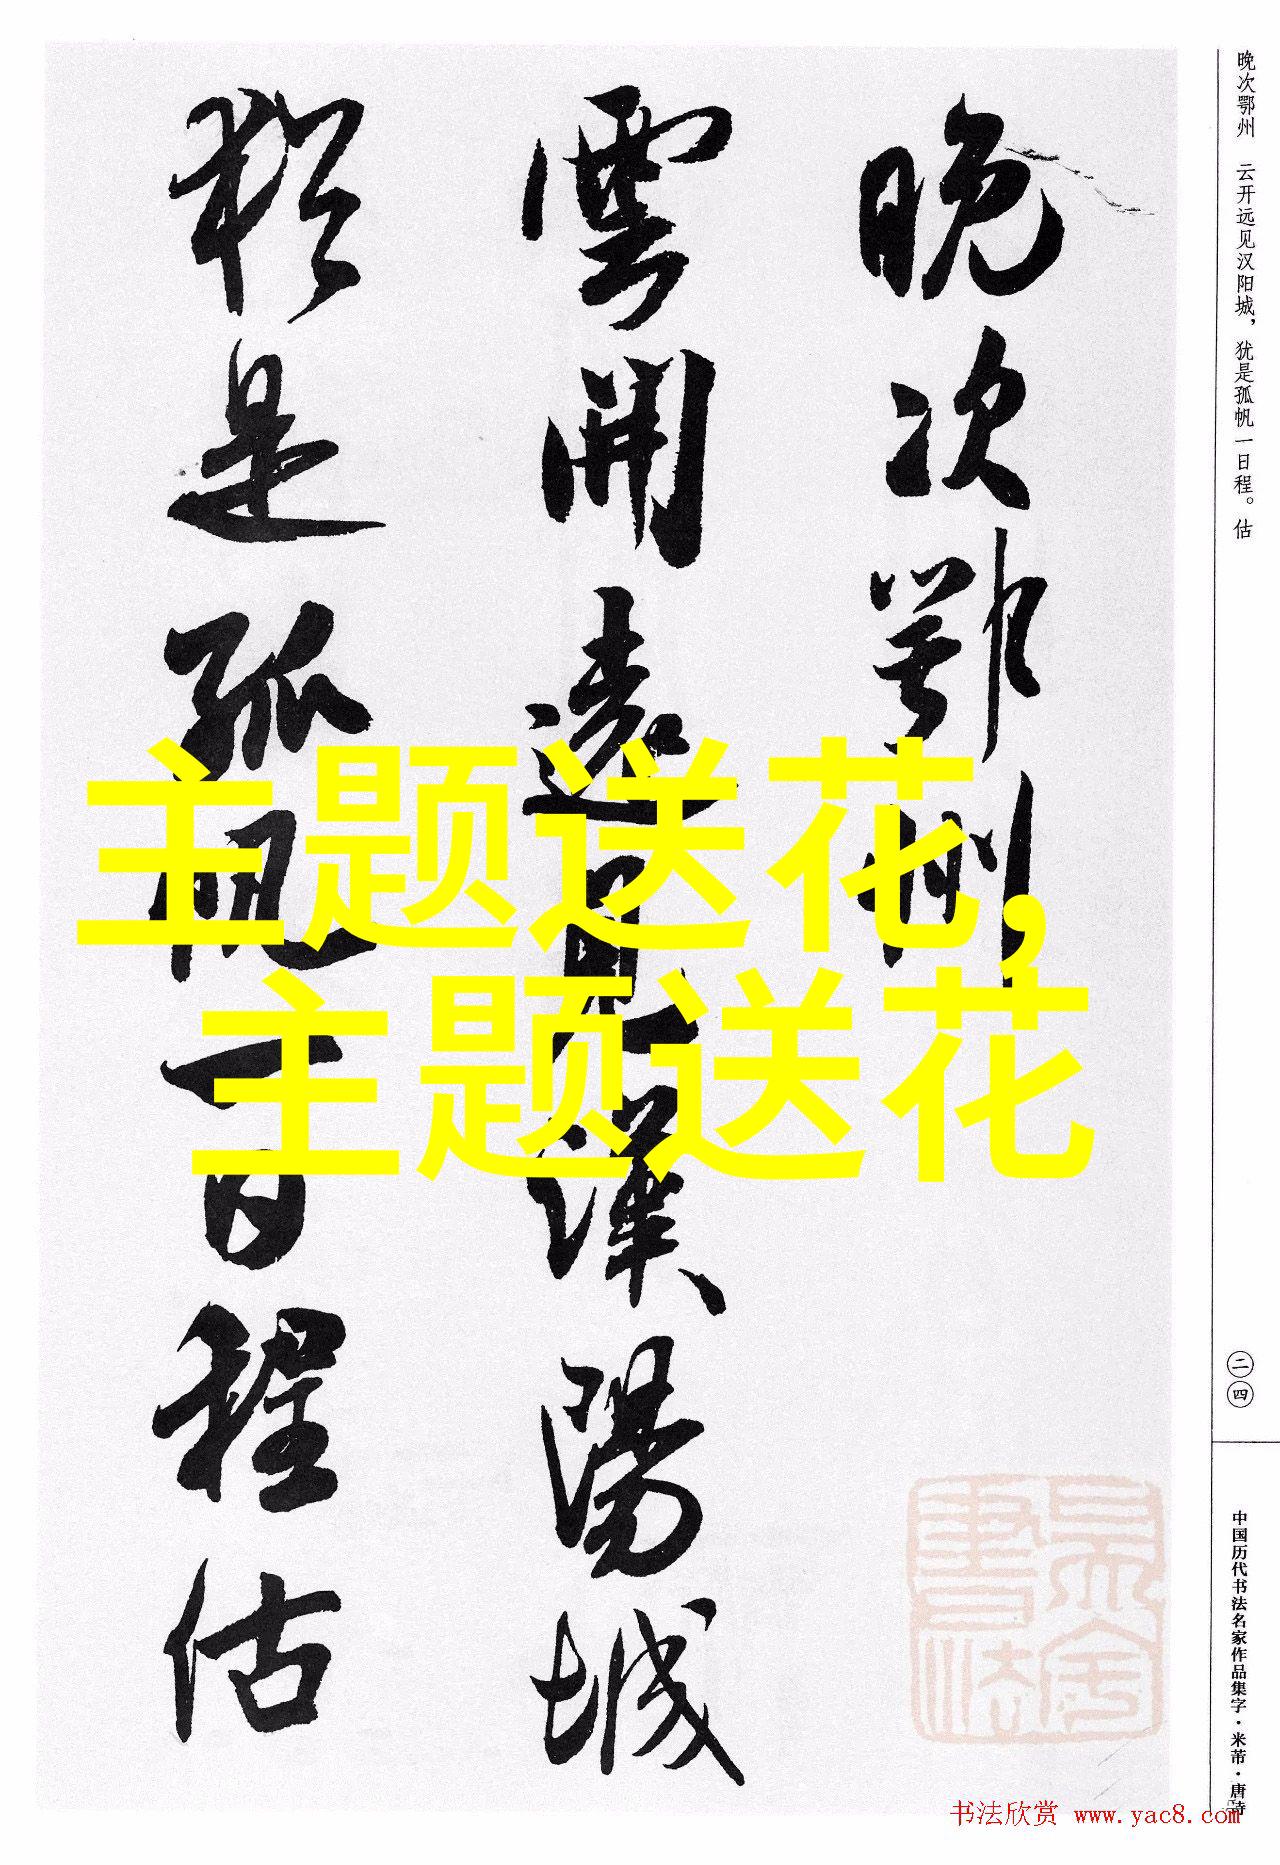 晚次鄂州
雲開遠見漢陽城
猶是孤帆一日程估
晚次鄂州 云开远见汉阳城，犹是孤帆一日程。估
二四
中国历代书法名家作品集字·米芾·唐诗
主题送花，
主题送花
书法欣赏 www.yac8.com